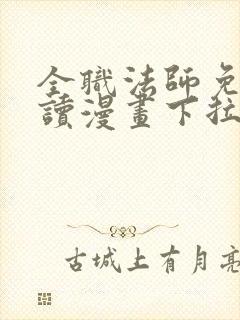 全職法師免
讀漫畫下拉
古城上有月亮